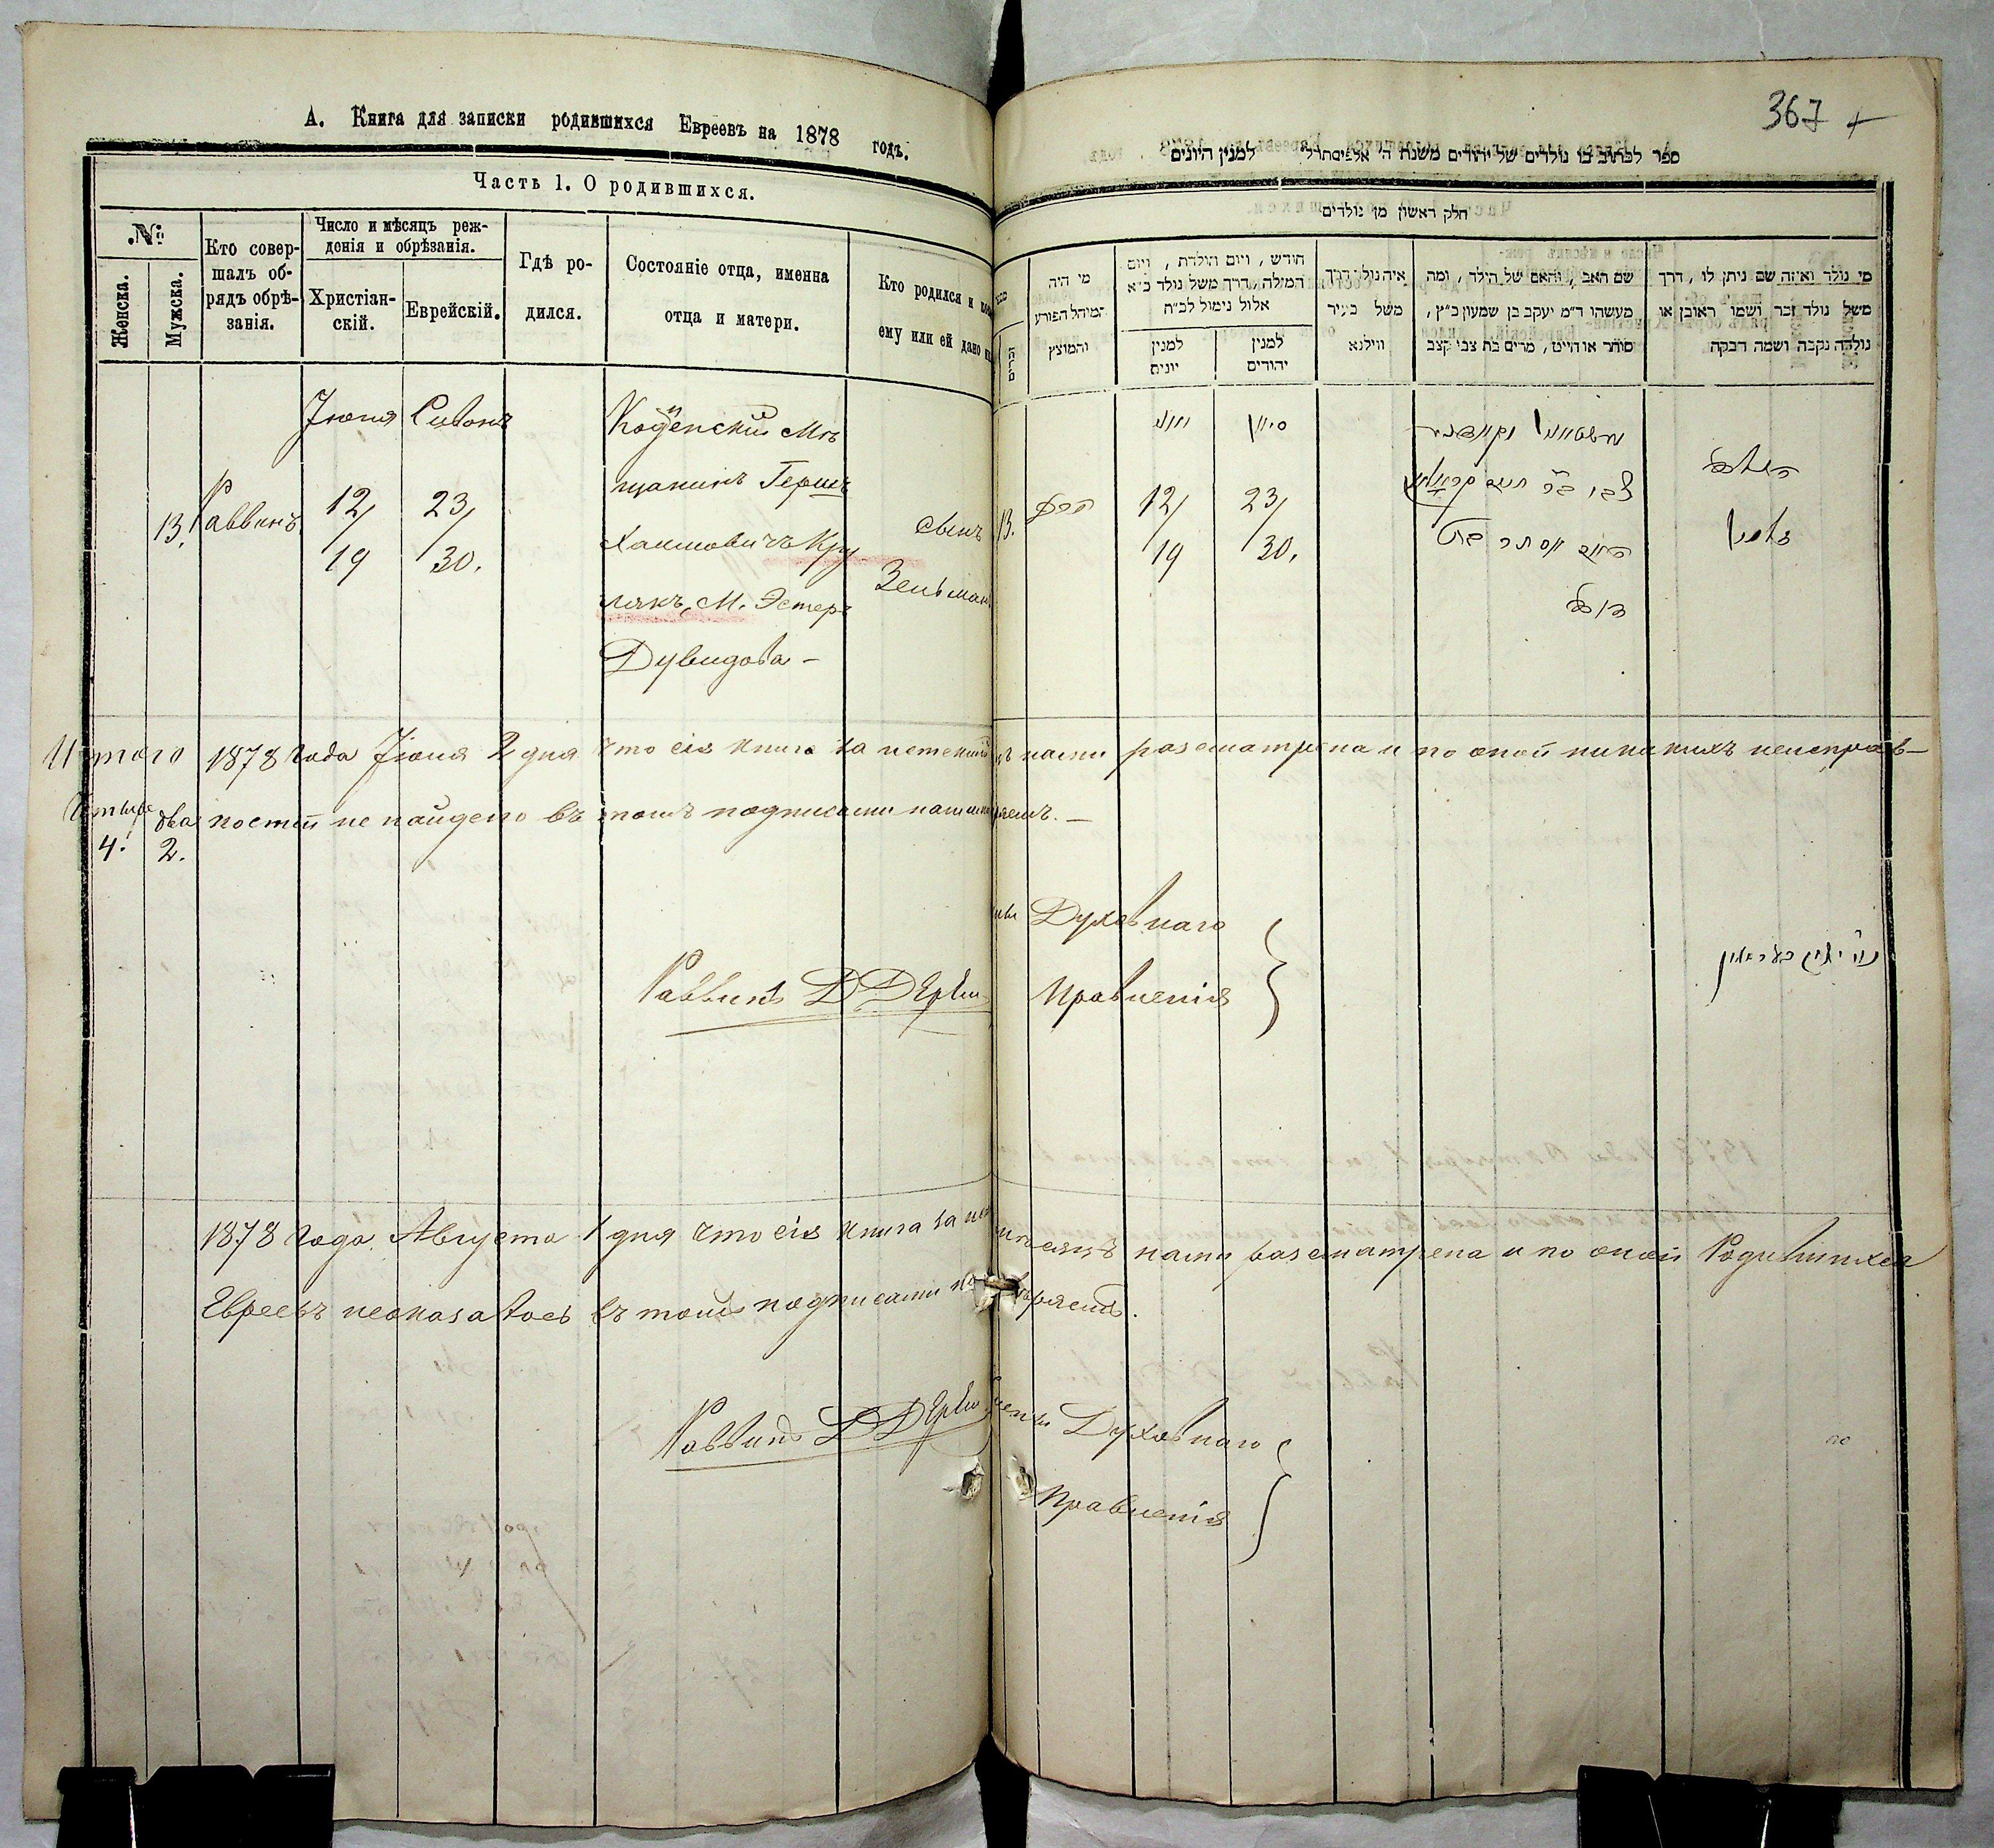 А. Книга для записки родившихся Евреевъ на 1878 годъ.
Часть 1. О родившихся.
№
Женска.
Мужска.
Кто совер-
шалъ об-
рядъ обрѣ-
занія.
Число и мѣсяцъ рож-
денія и обрѣзанія.
Христіан-
скій.
Еврейскій.
Гдѣ ро-
дился.
Состояніе отца, имена
отца и матери.
Кто родился и
ему или ей дано
13.
Раввинъ
Іюня
12/
19
Сивонъ
23/
30.
Кодненскій Мѣ
щанинъ Гершъ
Хаимовичъ Кру
лякъ, М. Эстеръ
Дувидова —
сынъ
Зельманъ
367
ספר לכתוב בו נולדים של יהודים משנת ה' אלפים תרל" למנין היונים
חלק ראשון מן נולדים
מי נולד ואיזה שם ניתן לו, דרך
משל נולד זכר ושמו ראובן או
נולדה נקבה ושמה רבקה
שם האב, והאם של הילד, ומה
מעשהו ד"מ יעקב בן שמעון כ"ץ,
סוחר או חייט, מרים בת צבי קצב
איה נולד דרך
משל בעיר
ווילנא
חודש, ויום הולדת, ויום
המילה, דרך משל נולד כ"א
אלול נימול לכ"ח
למנין
יהודים
למנין
יונית
מי היה
המוהל הפורע
והמוצץ
זכרים
סיון
23/
30.
יוני
12/
19
הרב
13.
זלמן
Итого 1878 года Іюня 2 дня что сія книга за истекшій нами разсматрена и по оной никакихъ неисправ-
четыре два ностей не найдено въ томъ подписами нашими
4. 2.
Раввинъ Д Д
Духовнаго
Правленія
1878 года Августа 1 дня что сія книга за мѣсяцъ нами разсматрена и по оной Родившихся
Евреевъ неоказалось въ томъ подписами
Раввинъ Д Д
Члены Духовнаго
Правленія